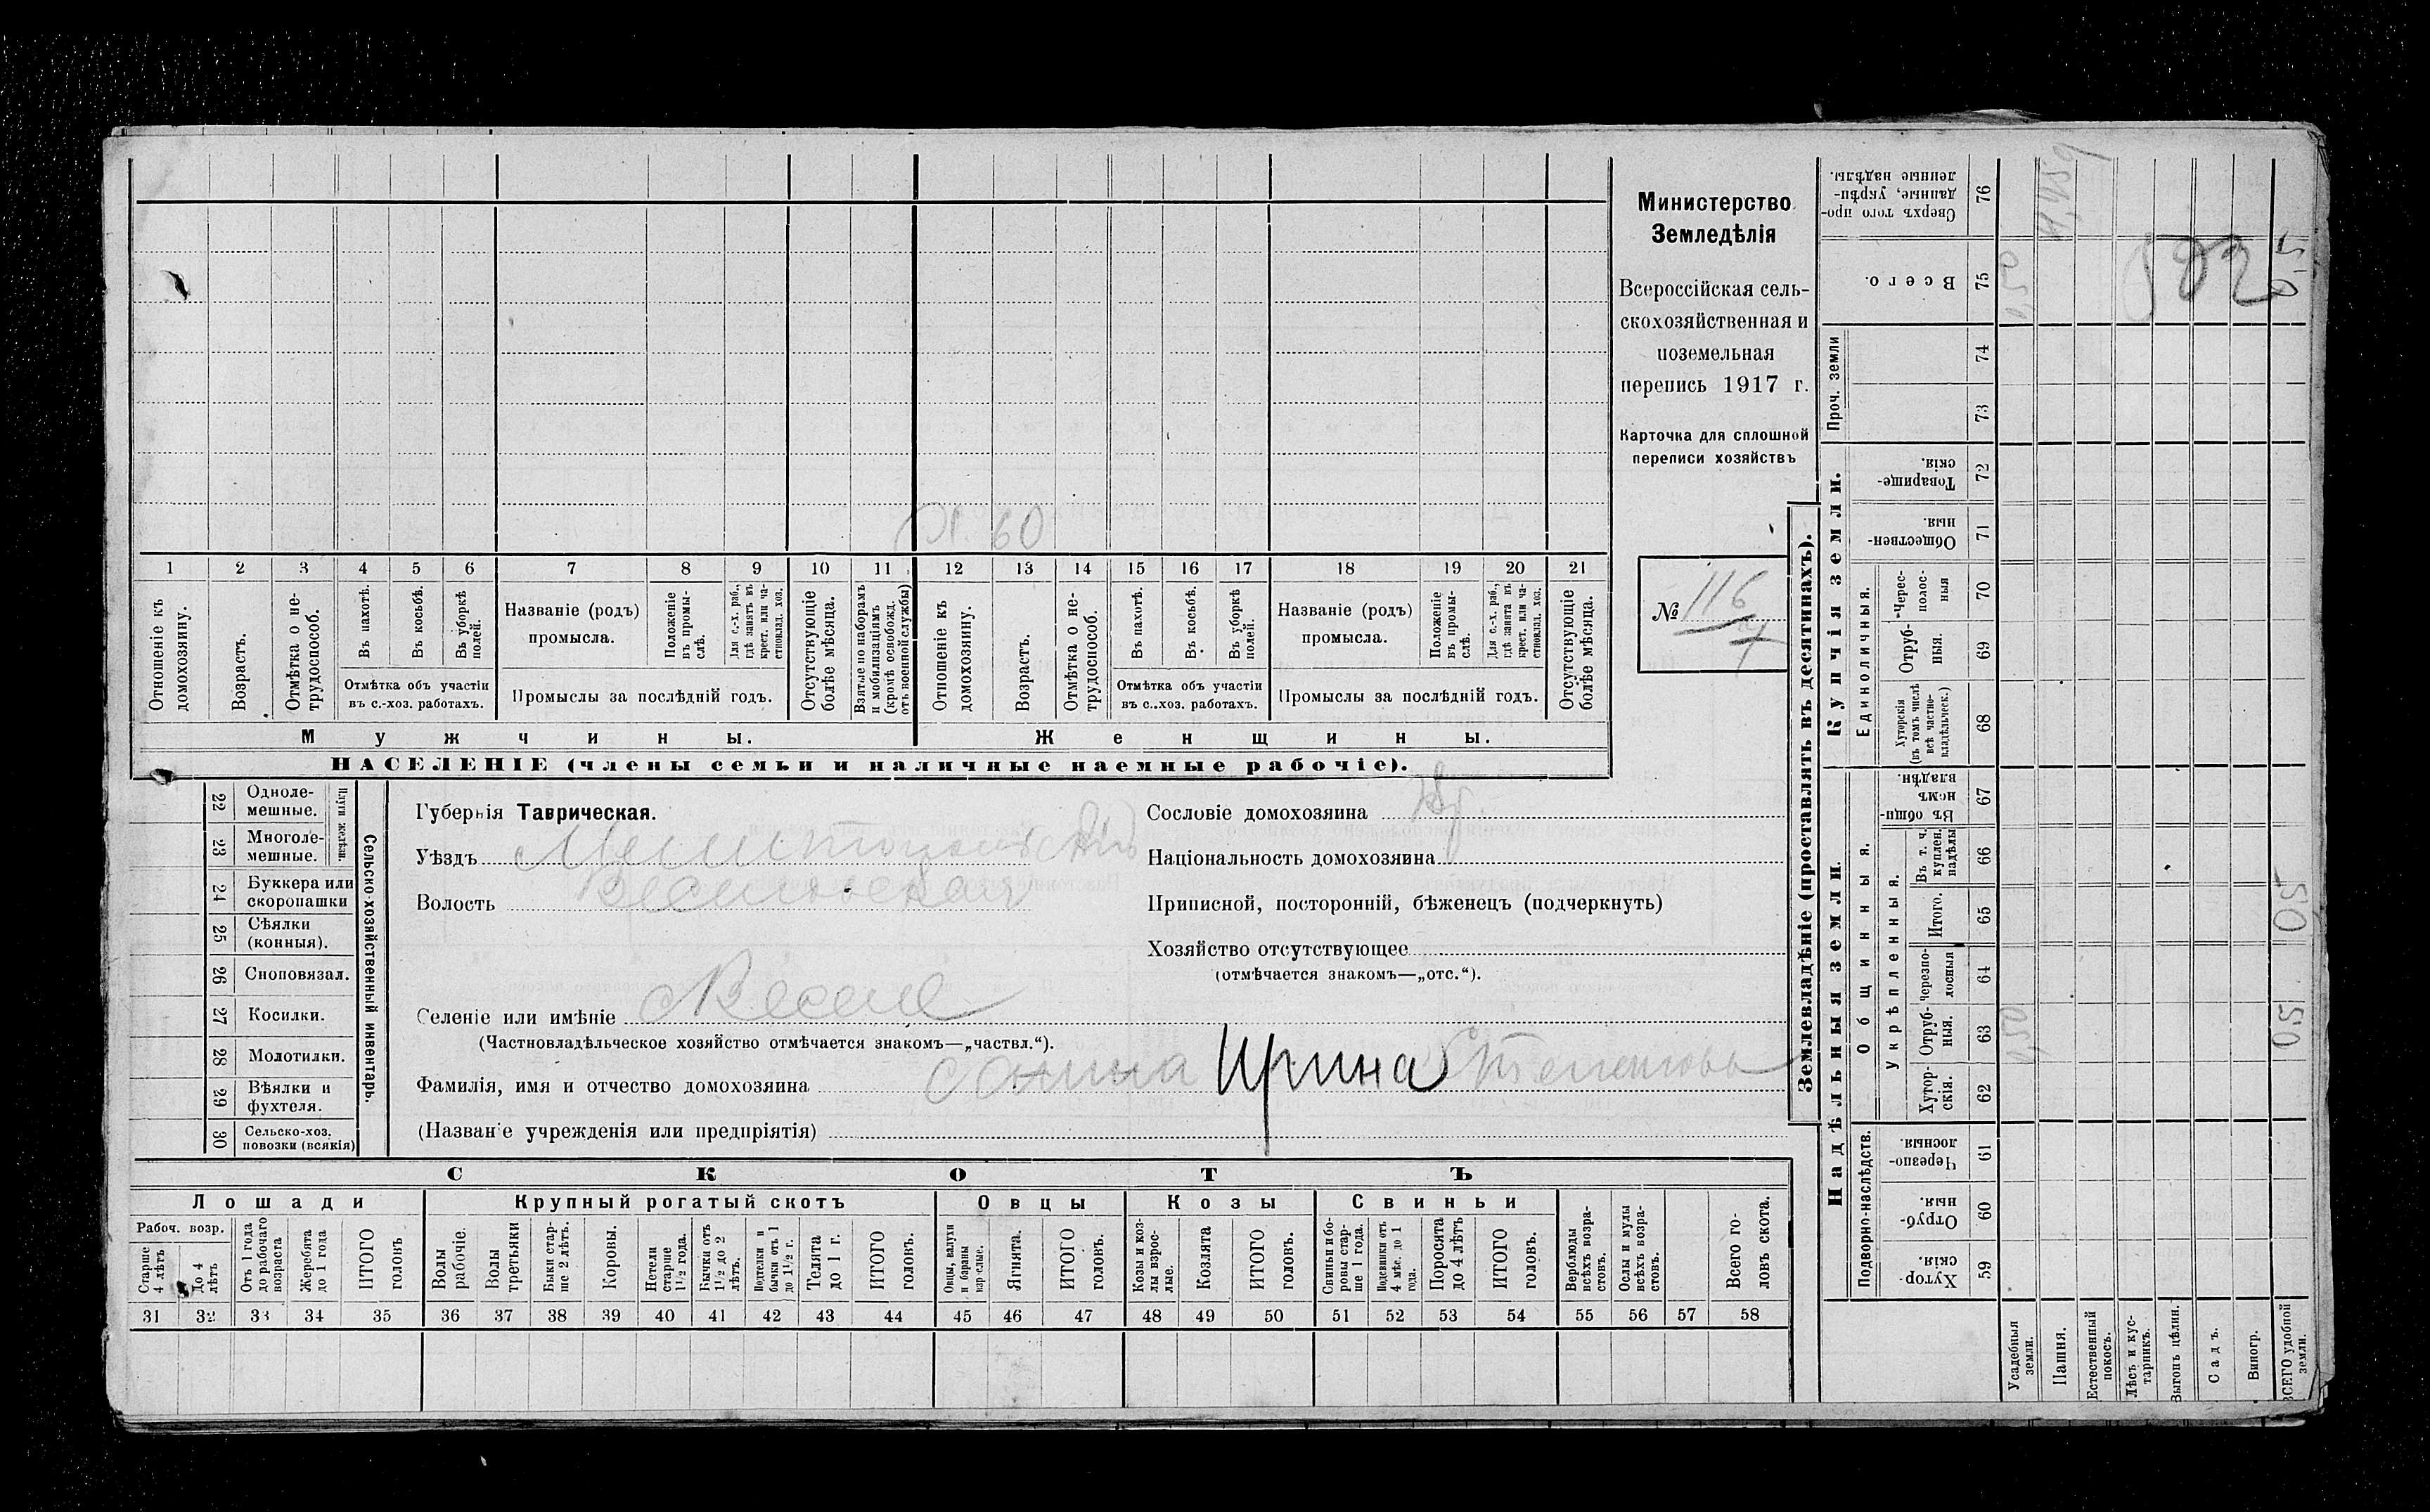 Министерство
Земледѣлія
Всероссійская сель-
скохозяйственная и
поземельная
перепись 1917 г.
Карточка для сплошной
переписи хозяйствъ
№ 116
7
х. 60
1 2 3 4 5 6 7 8 9 10 11 12 13 14 15 16 17 18 19 20 21
Отношеніе къ домохозяину.
Возрастъ.
Отмѣтка о не-трудоспособ.
Въ пахотѣ.
Въ косьбѣ.
Въ уборкѣ полей.
Отмѣтка объ участіи
въ с.-хоз. работахъ.
Названіе (родъ)
промысла.
Положеніе въ промы-слѣ.
Для с.-х. раб., гдѣ занятъ въ крест. или ча-стновлад. хоз.
Промыслы за послѣдній годъ.
Отсутствующіе болѣе мѣсяца.
Взятые по наборамъ и мобилизаціямъ (кромѣ освобожд. отъ военной службы)
Отношеніе къ домохозяину.
Возрастъ.
Отмѣтка о не-трудоспособ.
Въ пахотѣ.
Въ косьбѣ.
Въ уборкѣ полей.
Отмѣтка объ участіи
въ с..хоз. работахъ.
Названіе (родъ)
промысла.
Положеніе въ промы-слѣ.
Для с.-х. раб., гдѣ занята въ крест. или ча-стновлад. хоз.
Промыслы за послѣдній годъ.
Отсутствующіе болѣе мѣсяца.
Мужчины.
Женщины.
НАСЕЛЕНІЕ (члены семьи и наличные наемные рабочіе).
22 Однолемешные.
23 Многолемешные.
Плуги желѣзн.
24 Буккера или скоропашки
25 Сѣялки (конныя).
26 Сноповязал.
27 Косилки.
28 Молотилки.
29 Вѣялки и фухтеля.
30 Сельско-хоз. повозки (всякія)
Сельско-хозяйственный инвентарь.
Губернія Таврическая.
Уѣздъ Мелитопольскій
Волость Веселовская
Селеніе или имѣніе Веселое
(Частновладѣльческое хозяйство отмѣчается знакомъ—„частвл.“).
Фамилія, имя и отчество домохозяина Ирина
(Названіе учрежденія или предпріятія)
Сословіе домохозяина
Національность домохозяина
Приписной, посторонній, бѣженецъ (подчеркнуть)
Хозяйство отсутствующее
(отмѣчается знакомъ—„отс.“).
СКОТЪ
Лошади
Крупный рогатый скотъ
Овцы
Козы
Свиньи
Рабоч. возр.
Старше 4 лѣтъ
До 4 лѣтъ
Отъ 1 года до рабочаго возраста
Жеребята до 1 года
ИТОГО головъ
Волы рабочіе.
Волы третьяки
Быки стар-ше 2 лѣтъ.
Коровы.
Нетели старше 1 1/2 года.
Бычки отъ 1 1/2 до 2 лѣтъ.
Подтелки и бычки отъ 1 до 1 1/2 г.
Телята до 1 г.
ИТОГО головъ.
Овцы, валухи и бараны взрослые.
Ягнята.
ИТОГО головъ.
Козы и коз-лы взрос-лые.
Козлята
ИТОГО головъ.
Свиньи и бо-ровы стар-ше 1 года.
Подсвинки отъ 4 мѣс. до 1 года.
Поросята до 4 лѣтъ
ИТОГО головъ.
Верблюды всѣхъ возра-стовъ.
Ослы и мулы всѣхъ возра-стовъ.
Всего го-ловъ скота.
31 32 33 34 35 36 37 38 39 40 41 42 43 44 45 46 47 48 49 50 51 52 53 54 55 56 57 58
Землевладѣніе (проставлять въ десятинахъ).
Надѣльныя земли.
Купчія земли.
Проч. земли
Подворно-наслѣдств.
Общинныя.
Укрѣпленныя.
Единоличныя.
Сверхъ того про-данные, укрѣп-ленные надѣлы. 76
Всего. 75
74
73
Товарище-скія. 72
Обществен-ныя. 71
Черес-полос-ныя 70
Отруб-ныя. 69
Хуторскія (въ томъ числѣ всѣ частно-владѣльческ.) 68
Въ общи-номъ владѣн. 67
Въ т. ч. куплен. надѣлы 66
Итого. 65
Черезпо-лосныя 64
Отруб-ныя. 63
Хутор-скія. 62
Черезпо-лосныя 61
Отруб-ныя. 60
Хутор-скія. 59
Усадебныя земли.
Пашня.
Естественный покосъ.
Лѣсъ и кус-тарникъ.
Выгонъ цѣлин.
Садъ.
Виногр.
ВСЕГО удобной земли.